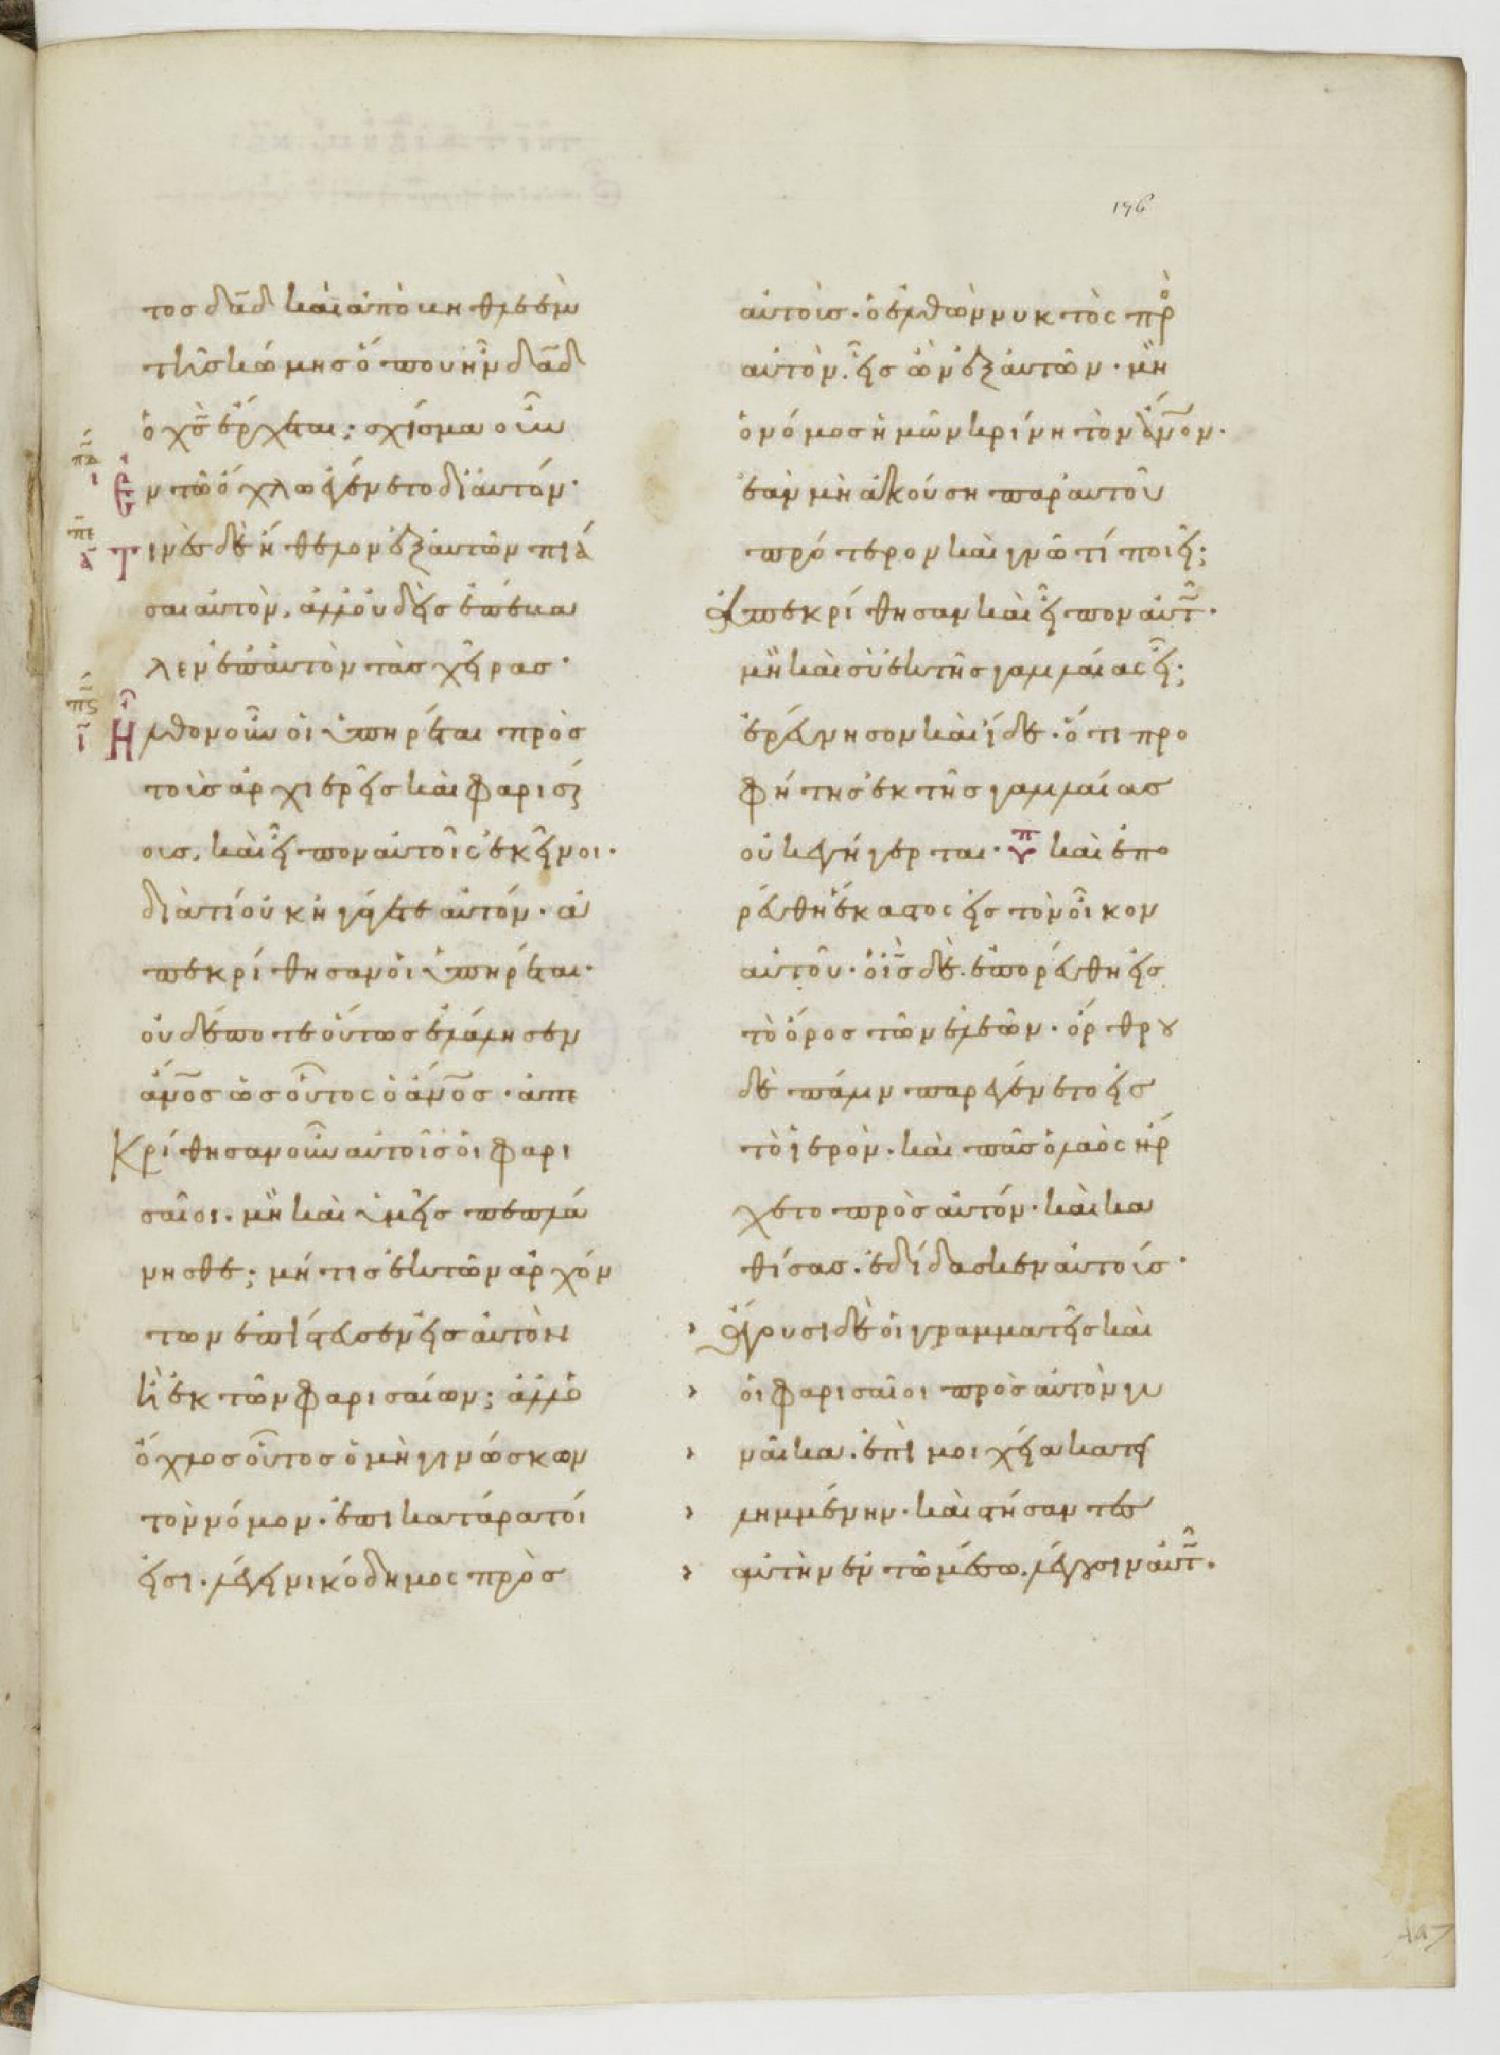 196
τος δᾱδ καὶ ἀπὸ βηθλεὲμ
τῆς κώμης ὅπου ἦν δᾱδ
ὁ χ̄ς ἔρχεται; σχίσμα οὖν
πδ ῑ Ἐν τῶ ὄχλω ἐγένετο δι' αὐτόν·
πε ᾱ Τινὲς δὲ ἤθελον ἐξ αὐτῶν πιά
σαι αὐτὸν, ἀλλ' οὐδεὶς ἐπέβα
λεν ἐπ' αὐτὸν τὰς χεῖρας·
πς ῑ Ἦλθον οὖν οἱ ὑπηρέται πρὸς
τοὺς ἀρχιερεῖς καὶ φαρισαί
ους, καὶ εἶπον αὐτοῖς ἐκεῖνοι·
διὰ τί οὐκ ἠγάγετε αὐτόν· ἀ
πεκρίθησαν οἱ ὑπηρέται·
οὐδέποτε οὕτως ἐλάλησεν
ἄν̄ος ὡς οὗτος ὁ ἄν̄ος· ἀπε
Κρίθησαν οὖν αὐτοῖς οἱ φαρι
σαῖοι. μὴ καὶ ὑμεῖς πεπλά
νησθε; μή τις ἐκ τῶν ἀρχόν
των ἐπίστευσεν εἰς αὐτὸν
ἢ ἐκ τῶν φαρισαίων; ἀλλ' ὁ
ὄχλος οὗτος ὁ μὴ γινώσκων
τὸν νόμον· ἐπικατάρατοί
εἰσι. λέγει νικόδημος πρὸς
αὐτούς· ὁ ἐλθὼν νυκτὸς πρὸ
αὐτὸν. εἷς ὢν ἐξ αὐτῶν· μὴ
ὁ νόμος ἡμῶν κρίνη τὸν ἄν̄ον·
ἐὰν μὴ ἀκούση παρ' αὐτοῦ
πρότερον καὶ γνῶ τί ποιεῖ;
Ἀπεκρίθησαν καὶ εἶπον αὐτ·
μὴ καὶ σὺ ἐκ τῆς γαλλαίας εἶ;
ἐρεύνησον καὶ ἴδε· ὅτι προ
φήτης ἐκ τῆς γαλλαίας
οὐκ ἐγήγερται· ὑπ καὶ ἐπο
ρεύθη ἕκαστος εἰς τὸν οἶκον
αὐτοῦ· ὁ ῑς δὲ. ἐπορεύθη εἰς
τὸ ὄρος τῶν ἐλεῶν· ὄρθρου
δὲ πάλιν παρεγένετο εἰς
τὸ ἱερόν· καὶ πᾶς ὁ λαὸς ἤρ
χετο πρὸς αὐτόν· καὶ κα
θίσας. ἐδίδασκεν αὐτούς·
› Ἄγουσι δὲ οἱ γραμματεῖς καὶ
› οἱ φαρισαῖοι πρὸς αὐτὸν γυ
› ναῖκα. ἐπὶ μοιχεία κατει
› λημμένην· καὶ στήσαντες
› αὐτὴν ἐν τῶ μέσω. λέγουσιν αὐτ·